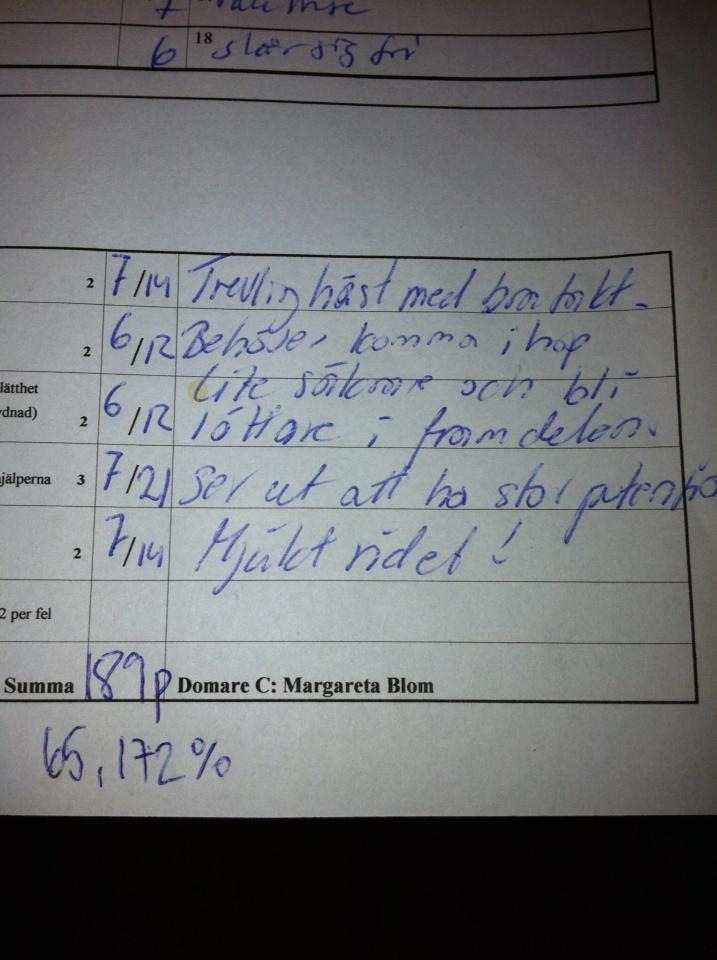 7
6 18 slår sig fri
2 7/14 Trevlig häst med bra takt.
2 6/12 Behöver komma ihop
lätthet
ydnad) 2 6/12 lite säkrare och bli
lättare i framdelen.
jälperna 3 7/21 Ser ut att ha stor potential
2 7/14 Mjukt ridet!
2 per fel
Summa 189p Domare C: Margareta Blom
65,172%